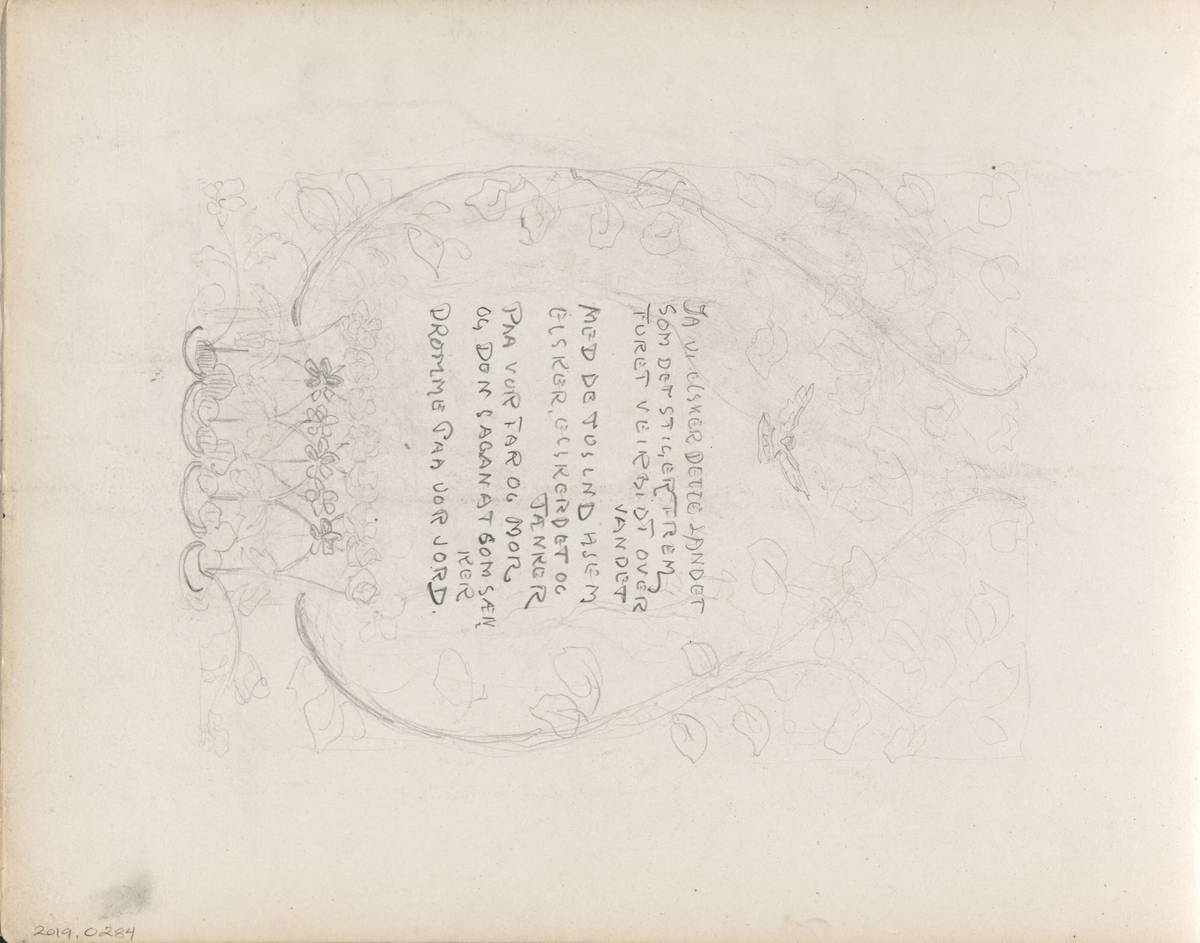 JA VI ELSKER DETTE LANDET
SOM DET STIGER FREM
FURET VEIRBIDT OVER
VANDET
MED DE TUSIND HJEM
ELSKER, ELSKER DET OG
TÆNKER
PAA VOR FAR OG MOR
OG DEN SAGANAT SOM SÆN
KER
DRØMME PAA VOR JORD.
2019.0284